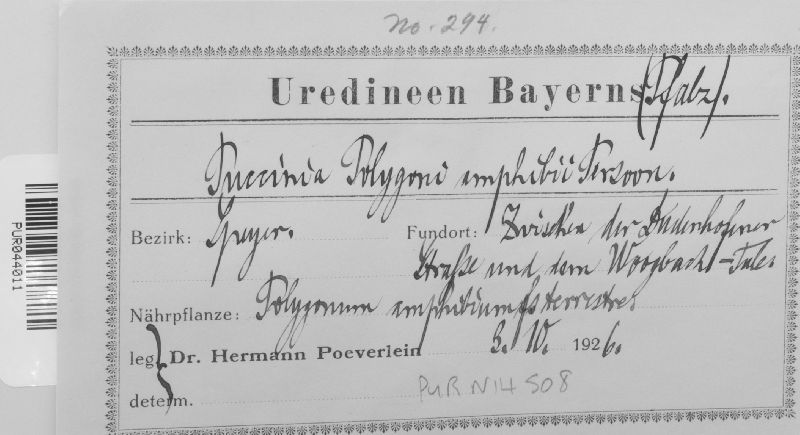 No. 294.
Uredineen Bayerns (Pfalz).
Puccinia Polygoni amphibii Persoon.
Bezirk: Speyer. Fundort: Zwischen der Dudenhofener
Straße und dem Woogbach-Tale.
Nährpflanze: Polygonum amphibium f. terrestre.
leg. Dr. Hermann Poeverlein 3. IV. 1926.
determ.
PUR N14508
PUR044011